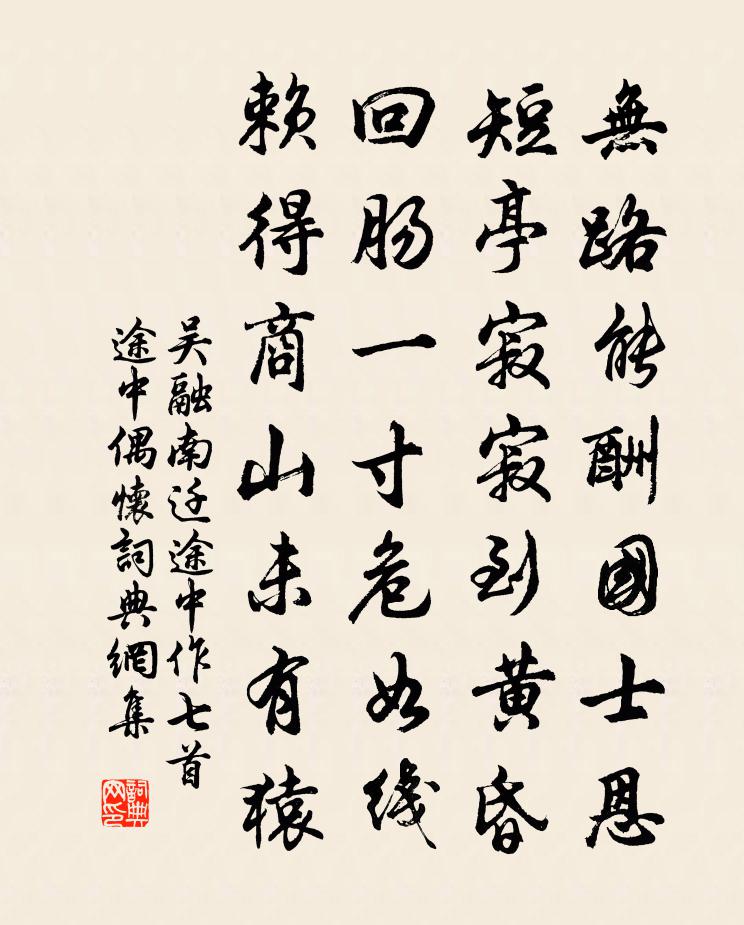 無路能酬國士恩
短亭寂寂到黄昏
回肠一寸危如线
赖得商山未有猿
吴融南迁途中作七首
途中偶懷詞典網集
詞典网印